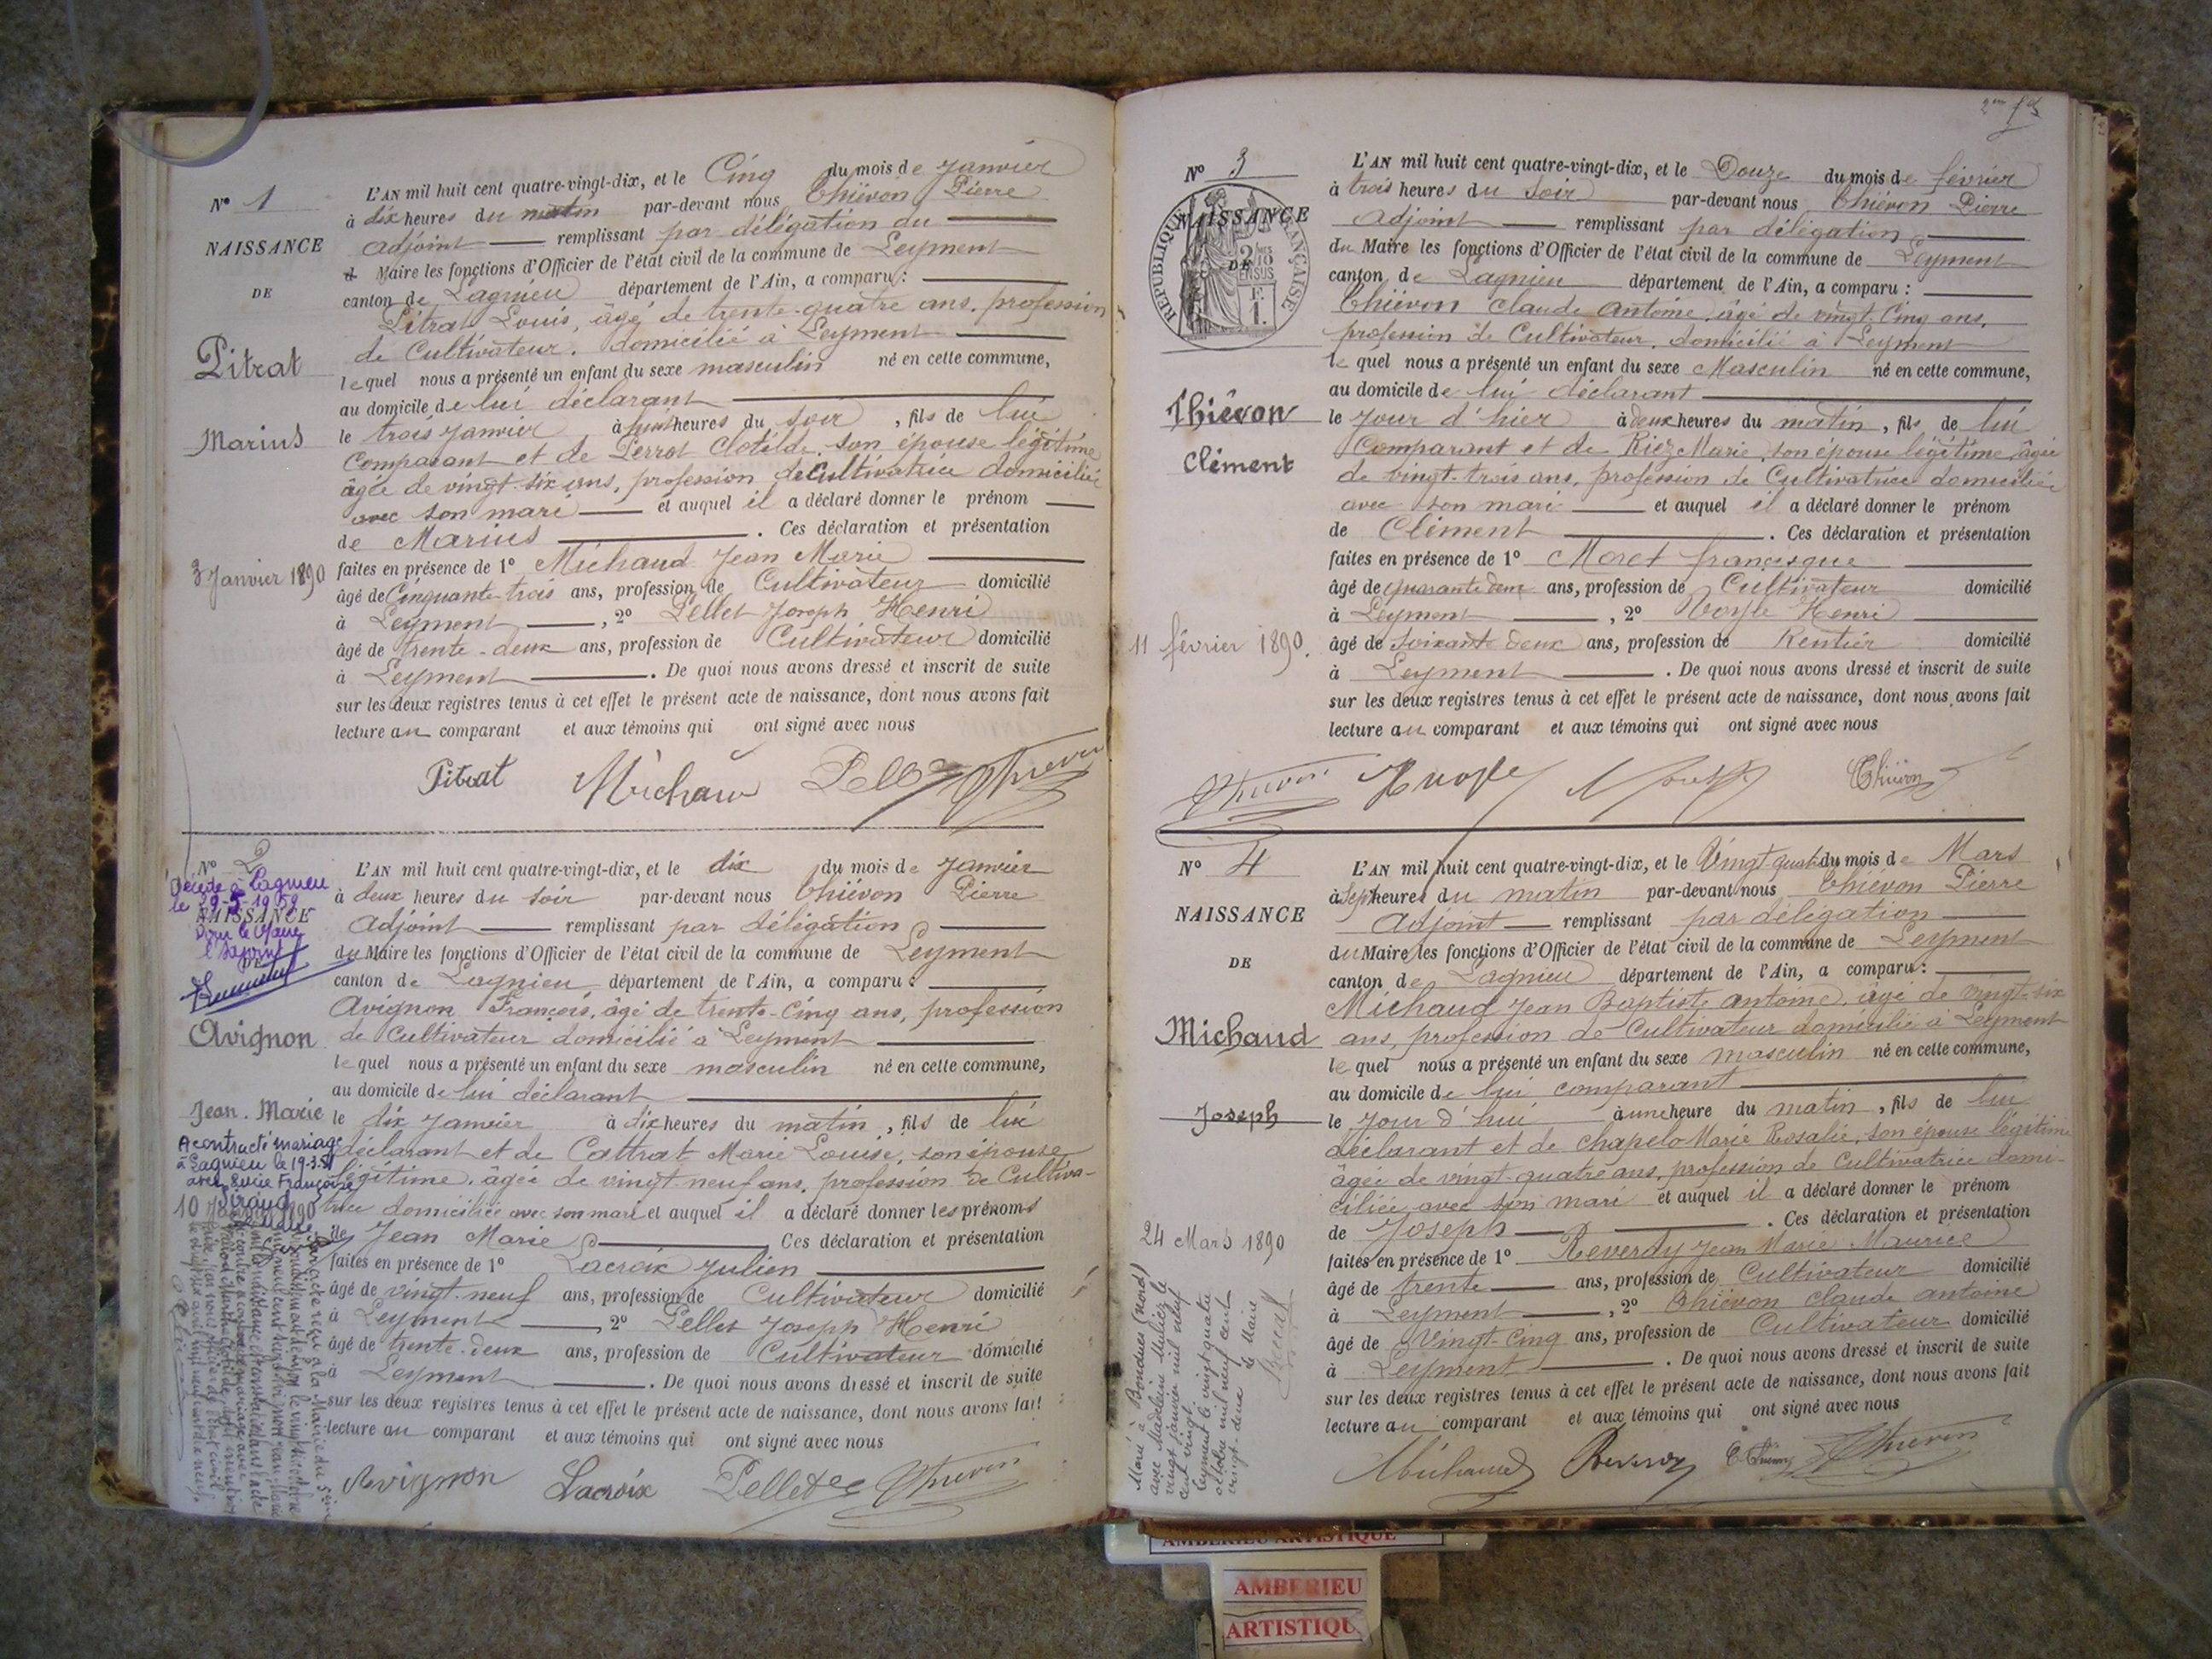 N° 1
NAISSANCE
DE
Pitrat
Marius
3 Janvier 1890
L'AN mil huit cent quatre-vingt-dix, et le Cinq du mois de Janvier
à dix heures du matin par-devant nous Thiévon Pierre
adjoint remplissant par délégation du
Maire les fonctions d'Officier de l'état civil de la commune de Leyment
canton de Lagnieu département de l'Ain, a comparu :
Pitrat Louis, âgé de trente-quatre ans, profession
de Cultivateur, domicilié à Leyment
lequel nous a présenté un enfant du sexe masculin né en cette commune,
au domicile de lui déclarant
le trois Janvier à heures du soir, fils de lui
Comparant et de Perrot Clotilde, son épouse légitime
âgée de vingt-six ans, profession de Cultivatrice domiciliée
avec son mari et auquel il a déclaré donner le prénom
de Marius. Ces déclaration et présentation
faites en présence de 1° Michaud Jean Marie
âgé de Cinquante-trois ans, profession de Cultivateur domicilié
à Leyment, 2° Pellet Joseph Henri
âgé de trente-deux ans, profession de Cultivateur domicilié
à Leyment. De quoi nous avons dressé et inscrit de suite
sur les deux registres tenus à cet effet le présent acte de naissance, dont nous avons fait
lecture au comparant et aux témoins qui ont signé avec nous
Pitrat Michaud Pellet Thievon
N° 2
Décédé à Lagnieu
le 29-5-1959
NAISSANCE
Pour le Maire
l'adjoint
DE
Avignon
Jean-Marie
A contracté mariage
à Lagnieu le 19-3-51
avec Lucie Françoise
Giraud
10 Janvier 1890
L'AN mil huit cent quatre-vingt-dix, et le dix du mois de Janvier
à deux heures du soir par-devant nous Thiévon Pierre
adjoint remplissant par délégation
du Maire les fonctions d'Officier de l'état civil de la commune de Leyment
canton de Lagnieu département de l'Ain, a comparu :
Avignon François, âgé de trente-Cinq ans, profession
de Cultivateur domicilié à Leyment
lequel nous a présenté un enfant du sexe masculin né en cette commune,
au domicile de lui déclarant
le dix Janvier à dix heures du matin, fils de lui
déclarant et de Cattrat Marie Louise, son épouse
légitime, âgée de vingt neuf ans, profession de Cultiva-
trice domiciliée avec son mari et auquel il a déclaré donner les prénoms
de Jean Marie Ces déclaration et présentation
faites en présence de 1° Lacroix Julien
âgé de vingt-neuf ans, profession de Cultivateur domicilié
à Leyment, 2° Pellet Joseph Henri
âgé de trente-deux ans, profession de Cultivateur domicilié
à Leyment. De quoi nous avons dressé et inscrit de suite
sur les deux registres tenus à cet effet le présent acte de naissance, dont nous avons fait
lecture au comparant et aux témoins qui ont signé avec nous
Avignon Lacroix Pellet Thievon
N° 3
RÉPUBLIQUE FRANÇAISE
NAISSANCE
DE
Thiévon
Clément
11 février 1890.
L'AN mil huit cent quatre-vingt-dix, et le Douze du mois de février
à trois heures du soir par-devant nous Thiévon Pierre
Adjoint remplissant par délégation
du Maire les fonctions d'Officier de l'état civil de la commune de Leyment
canton de Lagnieu département de l'Ain, a comparu :
Thiévon Claude Antoine, âgé de vingt-Cinq ans,
profession de Cultivateur, domicilié à Leyment
lequel nous a présenté un enfant du sexe Masculin né en cette commune,
au domicile de lui déclarant
le Jour d'hier à deux heures du matin, fils de lui
Comparant et de Riez Marie, son épouse légitime, âgée
de vingt-trois ans, profession de Cultivatrice domiciliée
avec son mari et auquel il a déclaré donner le prénom
de Clément. Ces déclaration et présentation
faites en présence de 1° Moret françisque
âgé de quarante deux ans, profession de Cultivateur domicilié
à Leyment, 2° Henri
âgé de soixante deux ans, profession de Rentier domicilié
à Leyment. De quoi nous avons dressé et inscrit de suite
sur les deux registres tenus à cet effet le présent acte de naissance, dont nous avons fait
lecture au comparant et aux témoins qui ont signé avec nous
Thievon Thiévon
N° 4
NAISSANCE
DE
Michaud
Joseph
24 Mars 1890
Marié à Bondues (Nord)
avec Madeleine Mulier le
vingt janvier mil neuf
cent vingt.
Leyment le vingt quatre
octobre mil neuf cent
vingt-deux
Le Maire
L'AN mil huit cent quatre-vingt-dix, et le Vingt-quatre du mois de Mars
à Sept heures du matin par-devant nous Thiévon Pierre
Adjoint remplissant par délégation
du Maire les fonctions d'Officier de l'état civil de la commune de Leyment
canton de Lagnieu département de l'Ain, a comparu :
Michaud Jean Baptiste Antoine, âgé de vingt-six
ans, profession de Cultivateur domicilié à Leyment
lequel nous a présenté un enfant du sexe masculin né en cette commune,
au domicile de lui comparant
le Jour d'hui à une heure du matin, fils de lui
déclarant et de Chapelo Marie Rosalie, son épouse légitime
âgée de vingt-quatre ans, profession de Cultivatrice domi-
ciliée avec son mari et auquel il a déclaré donner le prénom
de Joseph. Ces déclaration et présentation
faites en présence de 1° Reverdy Jean Marie Maurice
âgé de trente ans, profession de Cultivateur domicilié
à Leyment, 2° Thiévon Claude Antoine
âgé de Vingt-Cinq ans, profession de Cultivateur domicilié
à Leyment. De quoi nous avons dressé et inscrit de suite
sur les deux registres tenus à cet effet le présent acte de naissance, dont nous avons fait
lecture au comparant et aux témoins qui ont signé avec nous
Michaud Reverdy Thievon
AMBERIEU ARTISTIQUE
AMBERIEU
ARTISTIQU